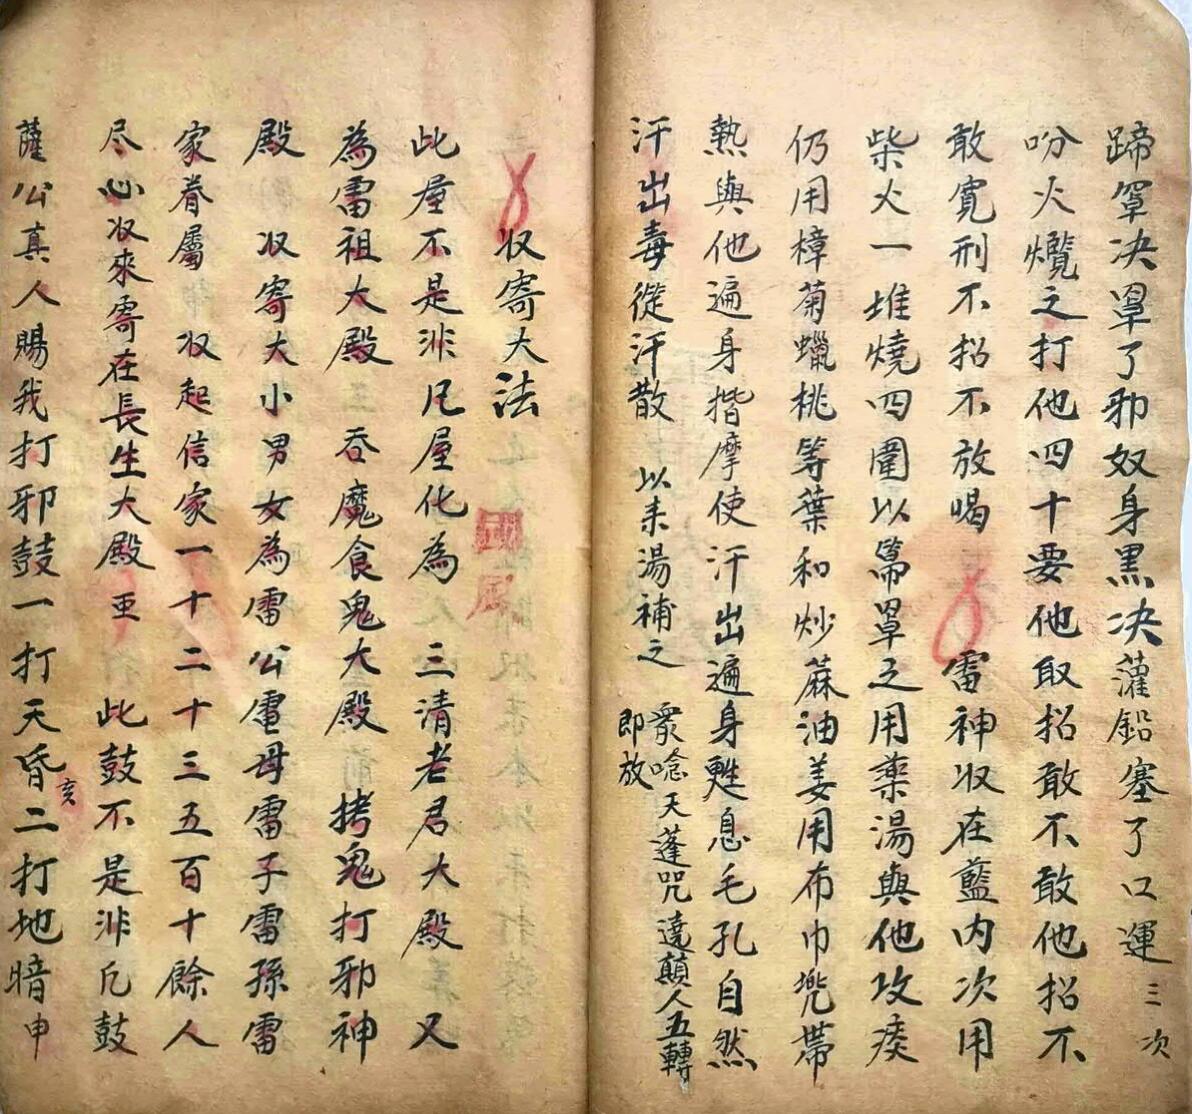 蹄罩决罩了邪奴身黑决灌鉛塞了口運三次
吩火爁之打他四十要他取招敢不敢他招不
敢寬刑不招不放喝 雷神収在藍内次用
柴火一堆燒四圍以簹罩之用藥湯與他攻痰
仍用樟菊蠟桃等葉和炒蔴油姜用布巾兠帶
熱與他遍身揩摩使汗出遍身甦息毛孔自然
汗出毒從汗散 以未湯補之 衆唸天蓬咒達顛人五轉
即放
収寄大法
此屋不是非凡屋化為 三清老君大殿 又
為雷祖大殿 吞魔食鬼大殿 拷鬼打邪神
殿 収寄大小男女為雷公電母雷子雷孫雷
家眷屬 収起信家一十二十三五百十餘人
尽心収來寄在長生大殿 亚 此鼓不是非凡鼓
薩公真人賜我打邪鼓一打天昏二打地暗申
亥